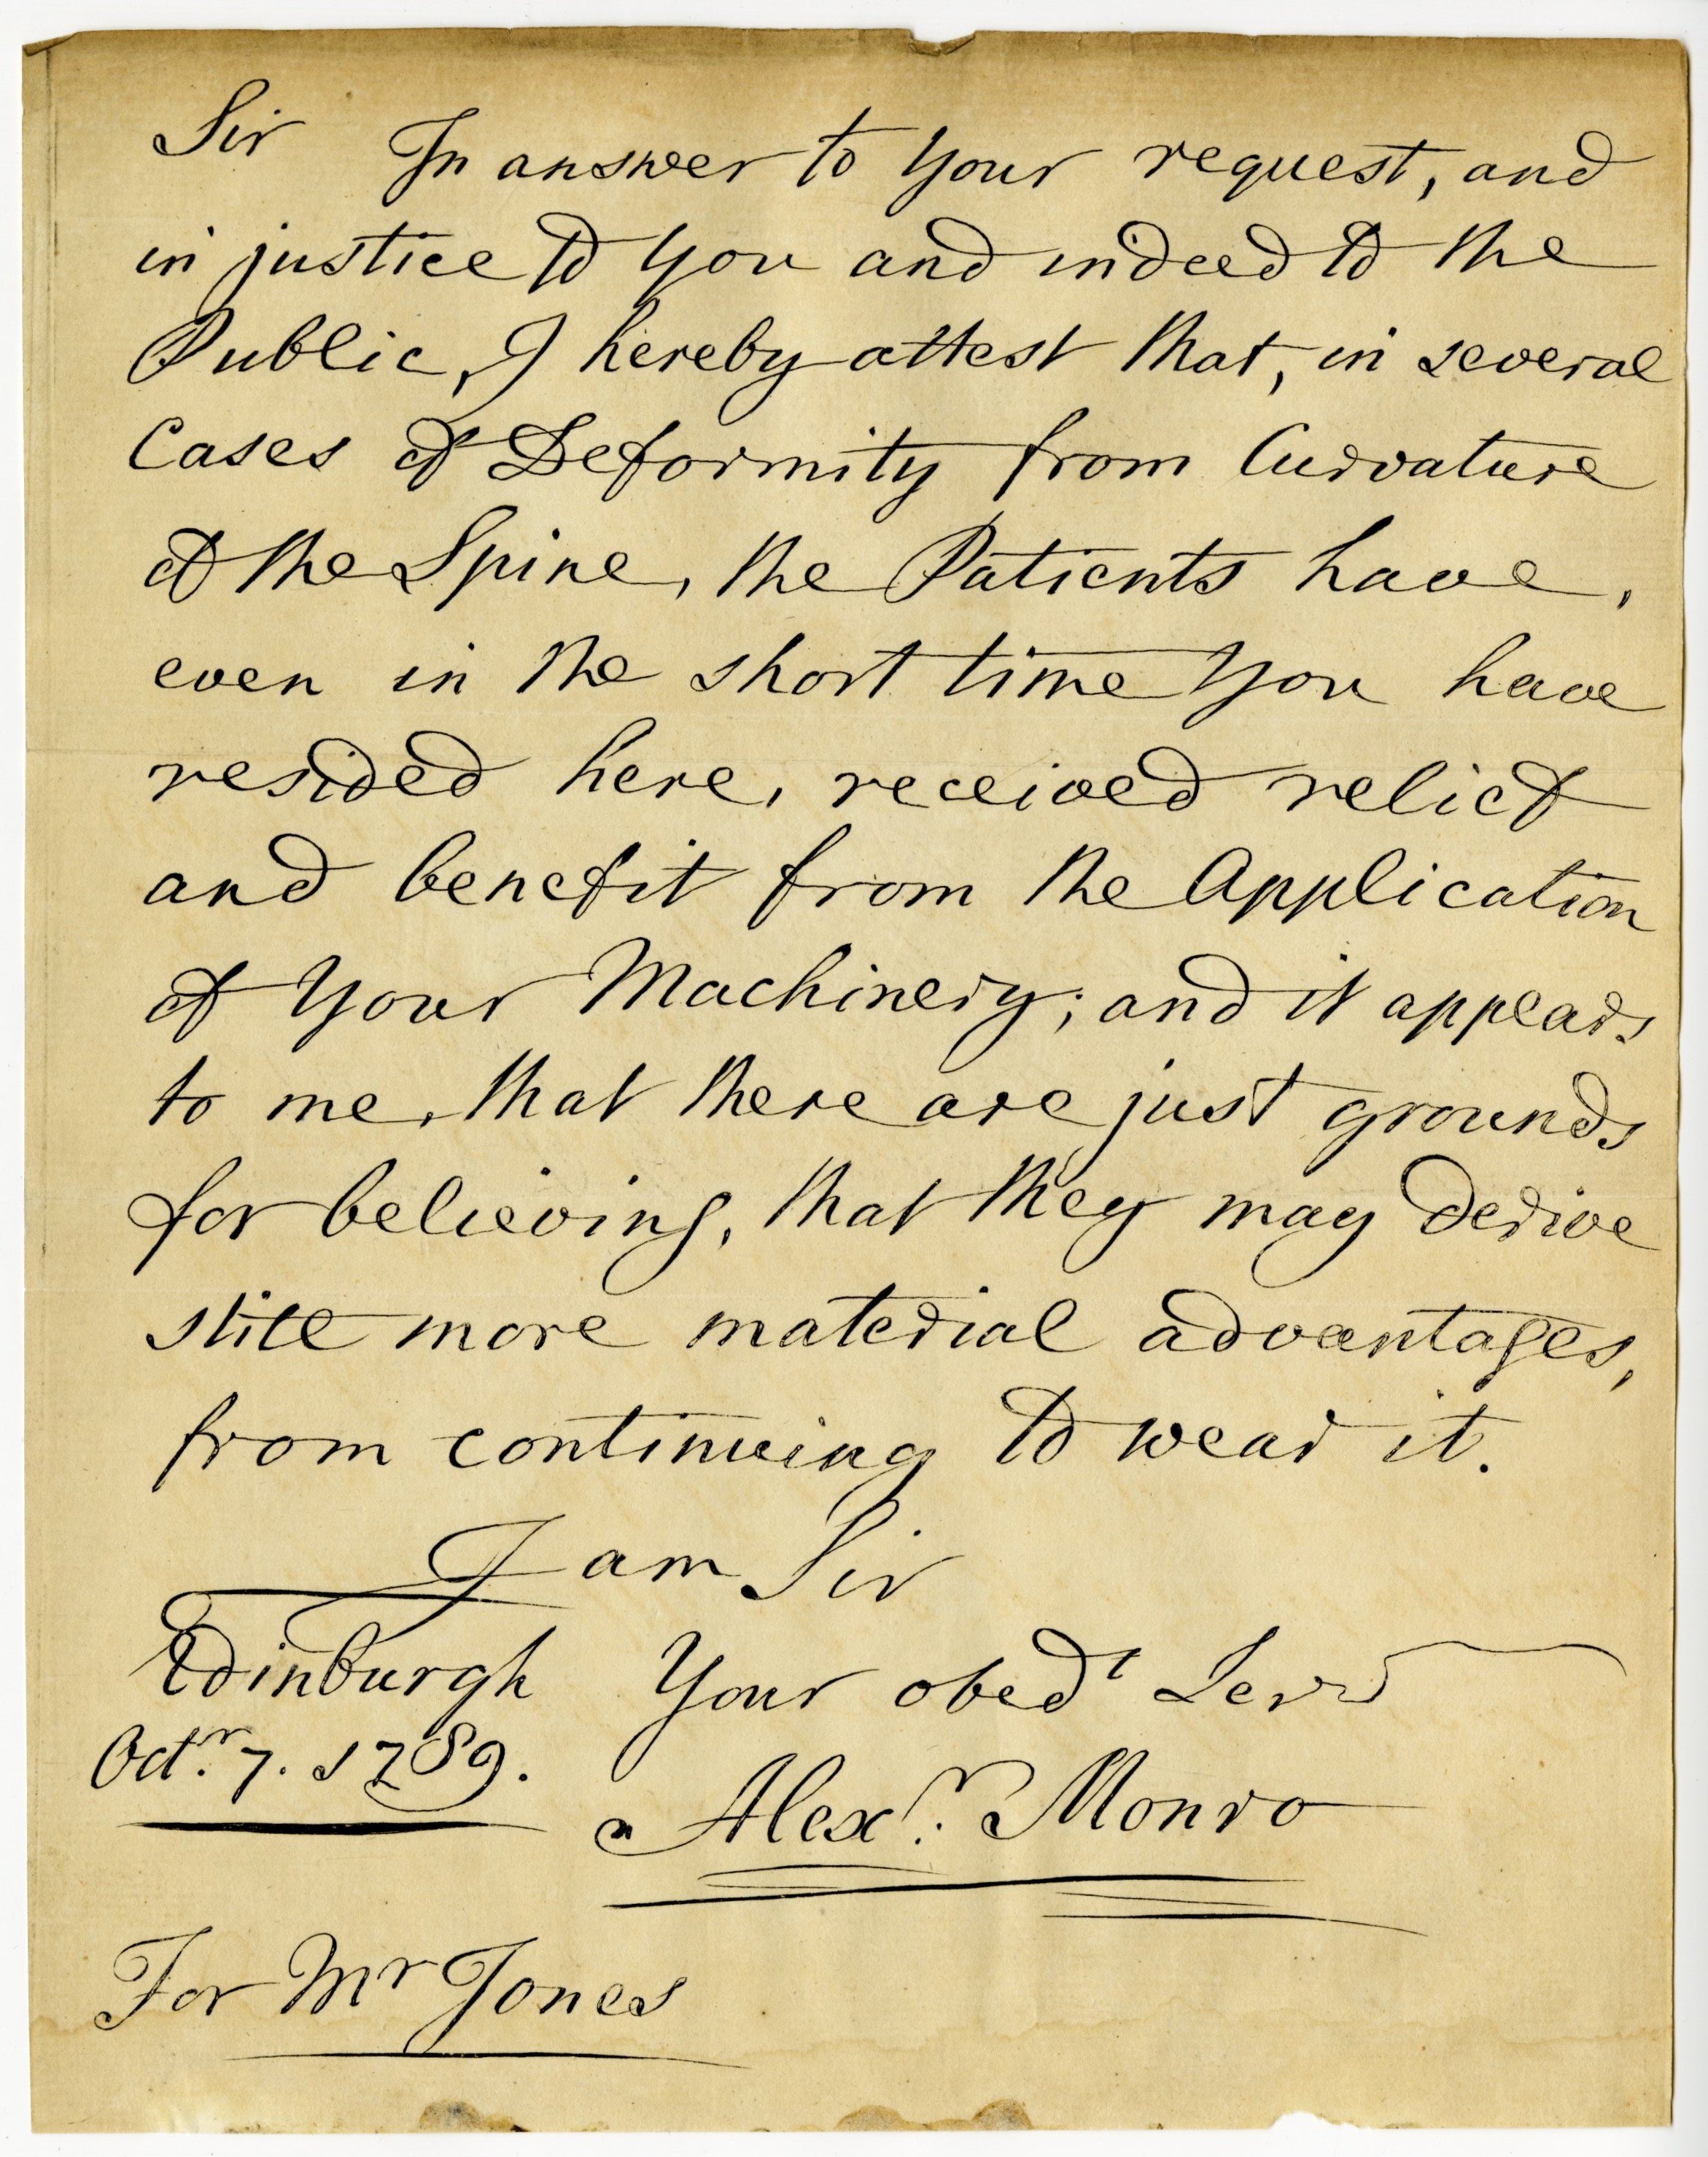 Sir In answer to Your request, and
in justice to You and indeed to the
Public, I hereby attest that, in several
Cases of Deformity from Curvature
of the Spine, the Patients have,
even in the short time You have
resided here, received relief
and benefit from the Application
of Your Machinery; and it appears
to me, that there are just grounds
for believing, that they may derive
still more material advantages,
from continuing to wear it.
I am Sir
Your obedt Serv
Edinburgh
Octr. 7. 1789.
Alexr. Monro
For Mr Jones